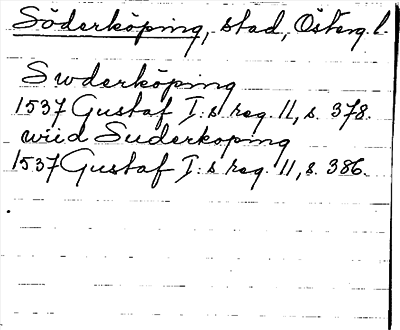 Söderköping, stad, Österg. l.
Swderköping
1537 Gustaf I:s reg. 11, s. 378.
wiid Suderkoping
1537 Gustaf I:s reg. 11, s. 386.